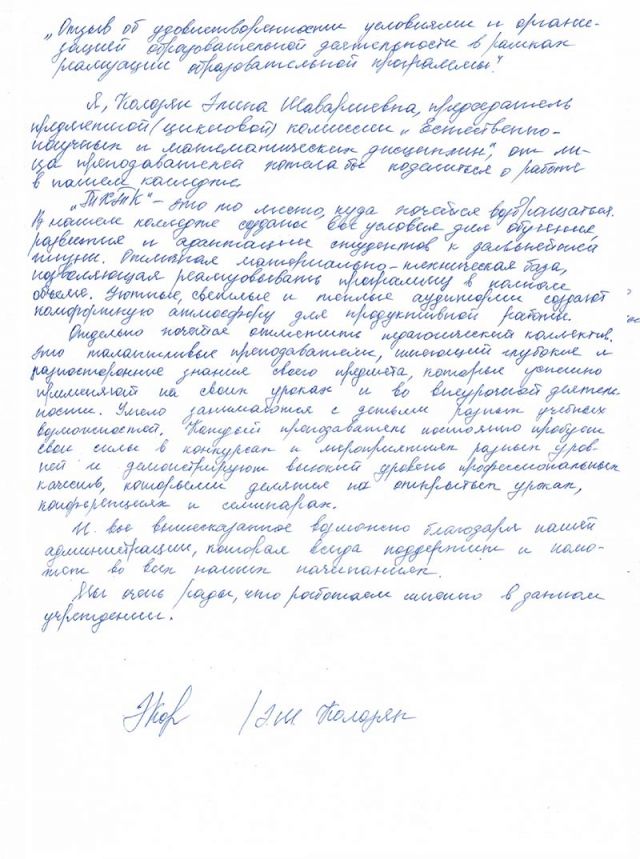 „Отзыв об удовлетворенности условиями и органи-
зацией образовательной деятельности в рамках
реализации образовательной программы".
Я, Колозян Элина Шаваршевна, председатель
предметной (цикловой) комиссии „Естественно-
научных и математических дисциплин", от ли-
ца преподавателей хотела бы поделиться о работе
в нашем колледже.
„ТКТК" – это то место, куда хочется возвращаться.
В нашем колледже созданы все условия для обучения,
развития и адаптации студентов к дальнейшей
жизни. Отличная материально-техническая база,
позволяющая реализовывать программу в полном
объеме. Уютные, светлые и тёплые аудитории создают
комфортную атмосферу для продуктивной работы.
Отдельно хочется отметить педагогический коллектив.
Это талантливые преподаватели, имеющий глубокие и
разносторонние знания своего предмета, которые успешно
применяют на своих уроках и во внеурочной деятель-
ности. Умело занимаются с детьми разных учебных
возможностей. Каждый преподаватель постоянно пробует
свои силы в конкурсах и мероприятиях разных уров-
ней и демонстрируют высокий уровень профессиональных
качеств, которыми делятся на открытых уроках,
конференциях и семинарах.
И все вышесказанное возможно благодаря нашей
администрации, которая всегда поддержит и помо-
жет во всех наших начинаниях.
Мы очень рады, что работаем именно в данном
учреждении.
/Э.Ш. Колозян